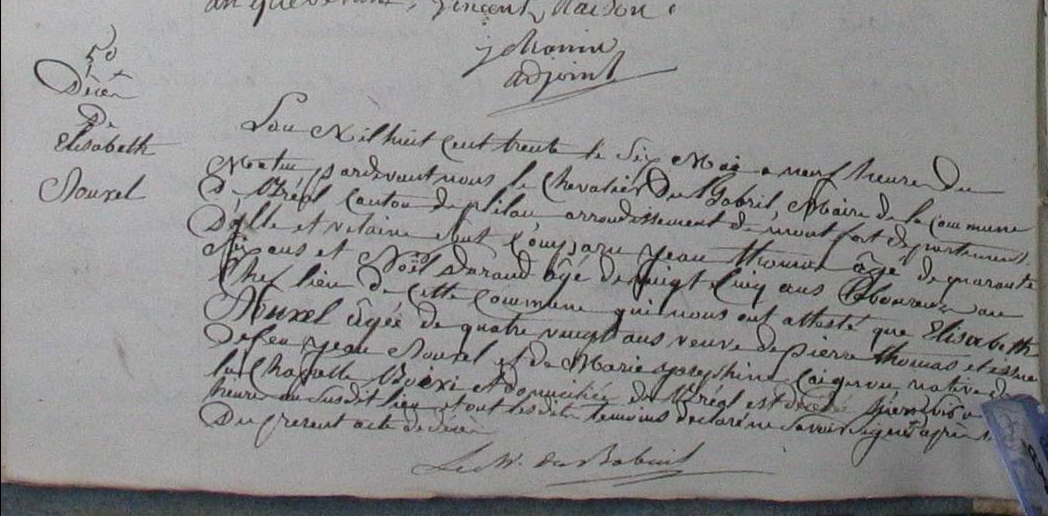 Vincent, Maison.
adjoint
5e
Décès
De
Elisabeth
Nouxel
L'an Mil huit cent trente le Six Mai a neuf heures Du
Matin pardevant nous le Chevalier Du Maire de la commune
De Bréal Canton de plélan arroudissement de montfort departement
D'ille et vilaine Sont Comparu jean thomas âgé de quarante
Six ans et Noël Durand âgé de vingt Cinq ans laboureurs au
Chef lieu De Cette Commune qui nous ont attesté que Elisabeth
Nouxel âgée de quatre vingt ans veuve de pierre thomas et
De feu jean Nouxel et de Marie native de
la Chapelle et domiciliée De Bréal est
heures au Susdit lieu et ont lesdits temoins declaré ne Savoir Signer après
Du present acte de décès